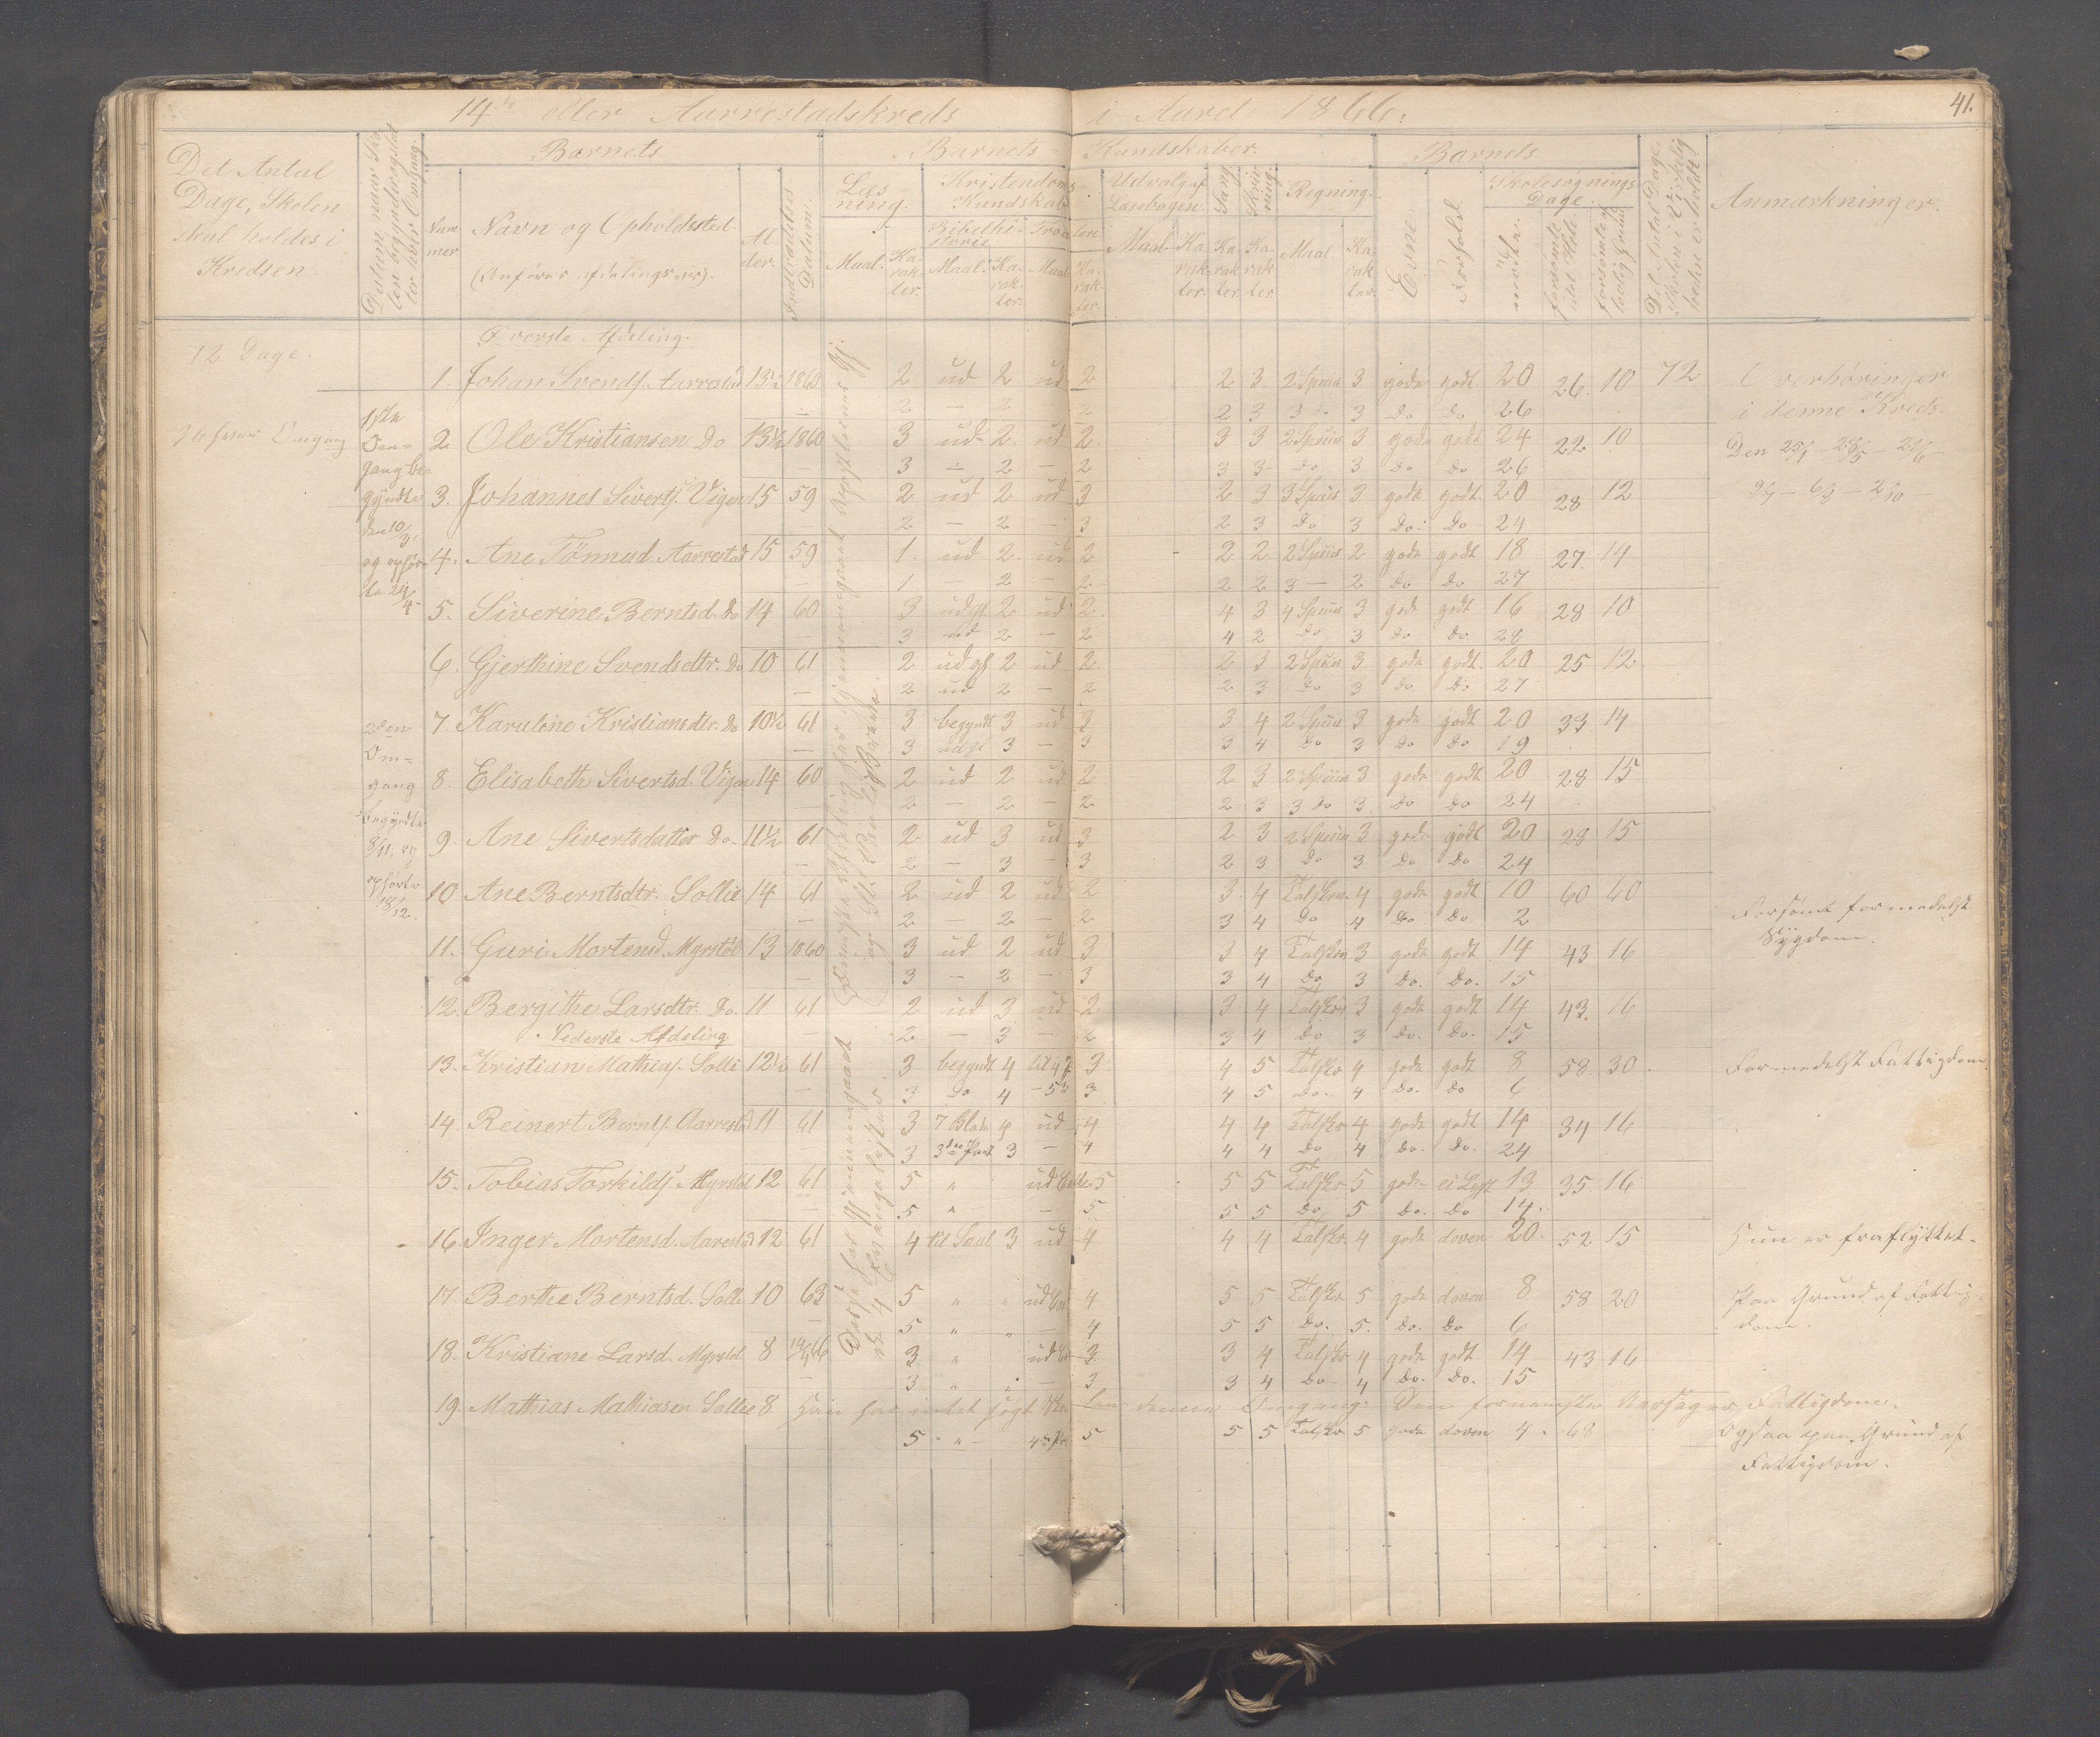 14de eller Aarrestadskreds i Aaret 1866.
41.
Det Antal Dage, Skolen skal holdes i Kredsen.
Datum, naar Skolen begyndes og slutter hver Omgang.
Barnets
Nummer
Navn og Opholdssted.
(Anføres afdelingsvis).
Alder.
Indtrædelses-Datum.
Barnets Kundskaber.
Læsning.
Maal.
Karakter.
Kristendoms Kundskab
Bibelhistorie
Maal.
Karakter.
Troeslære
Maal
Karakter.
Udvalg af Læsebogen.
Maal
Karakter.
Sang
Karakter.
Skrivning.
Karakter.
Regning.
Maal
Karakter.
Barnets
Evne.
Forhold.
Skolesøgnings Dage.
mødte.
forsømte i det Hele.
forsømte af lovlig Grund.
Det Antal Dage, Skolen i Virkeligheden er holdt.
Anmærkninger.
72 Dage.
36 hver Omgang
Øverste Afdeling.
1. Johan Svends. Aarrestad 13½ 1860 2 ud 2 ud 2 2 3 2 Speciis 3 gode godt 20 26 10 72 6 overhøringer
2 — 2 — 2 2 3 3 — 3 do do 26 i denne Kreds.
1ste Omgang begyndte den 10/3, og ophørte 24/4
2 Ole Kristiansen Do 13½ 1860 3 ud 2 ud 2 3 3 2 Speciis 3 gode godt 24 22 10 Den 25/1 — 28/5 — 21/6
3 — 2 — 2 3 3 do 3 do do 26
3. Johannes Siverts. Vigen 15 59 2 ud 2 ud 3 2 3 3 Speciis 3 gode godt 20 28 12
2 — 2 — 3 2 3 Do 3 Do Do 24
4. Ane Tönnesd. Aarrestad 15 59 1. ud 2 ud 2 2 2 2 Speciis 2 gode godt 18 27. 14
1 — 2 — 2 2 2 3 — 2 Do Do 27
5. Siverine Berntsd. Do 14 60 3 udgf 2 ud 2 4 3 4 Speciis 3 gode godt 16 28 10
3 ud 2 — 2 4 2 Do 3 Do Do 28
6. Gjerthine Svendsdtr. Do 10 61 2 udgf 2 ud 2 2 3 2 Speciis 3 gode godt 20 25 12
2 ud 2 — 2 2 3 Do 3 Do Do 27
2den Omgang begyndte 8/11, og ophørte 18/12.
7. Karuline Kristiansdtr. Do 10½ 61 3 begyndt 3 ud 3 3 4 2 Speciis 3 gode godt 20 33 14
3 udgf 3 — 3 3 4 Do 3 Do Do 19
8. Elisabeth Sivertsd. Vigen 14 60 2 ud 2 ud 2 2 3 2 Speciis 3 gode godt 20 28 15
2 — 2 — 2 2 3 3 Do 3 Do Do 24
9. Ane Sivertsdatter Do. 11½ 61 2 ud 3 ud 3 2 3 2 Speciis 3 gode godt 20 28 15
2 — 3 — 3 2 3 Do 3 Do Do 24
10 Ane Berntsdtr. Sollie 14 61 2 ud 2 ud 2 3 4 Talskr. 4 gode godt 10 60 60 Forsømt formedelst
2 — 2 — 2 3 4 Do 4 Do Do 2 Sygdom.
11. Guri Mortensd. Myrstöl 13 1860 3 ud 2 ud 3 3 4 Talskr 3 gode godt 14 43 16
3 — 2 — 3 3 4 Do 3 Do. Do. 15
12. Bergithe Larsdtr. Do. 11 61 2 ud 3 ud 2 3 4 Talskr 3 gode godt 14 43. 16
Nederste Afdeling. 2 — 3 — 2 3 4 Do 3 Do. Do. 15
13. Kristian Mathias. Solli 12½ 61 3 begyndt 4 til 4 P 3 4 5 Talskr 4 gode godt 8 58 30 Formedelst Fattigdom
3 Do 4 — 5 3 4 5 Do. 4 Do. Do 6
14. Reinert Bernts. Aarrestad 11 61 3 7 Blade 4 ud 4 4 4 Talskr 4 gode godt 14 34 16
3 3die Part 3 — 4 4 4 Do 4 Do. Do. 24
15. Tobias Torkilds. Myrstöl 12 61 5 " ud 5 5 5 Talskr 5 gode 13 35 16
5 " — 5 5 5 Do. 5 Do. Do 14.
16. Inger Mortensd. Aarestad 12 61 4 til Saul 3 ud 4 4 4 Talskr. 4 gode doven 20. 52 15 Hun er fraflyttet.
17. Berthe Berntsd. Solli 10 63 5 " " ud 4 5 5 Talskr 5 gode doven 8 58 20 Paa Grund af Fattigdom.
5 " " — 4 5 5 Do. 5. Do. Do 6
18. Kristiane Larsd. Myrstöl. 8 14/4 66 3 " ud 3 3 4 Talskr 4 gode godt 14 43 16
3 " " — 3 3 4 Do 4 Do. Do. 15
19. Mathias Mathiasen Sollie 8 Han har intet søgt Skolen denne Omgang. Den fornemste Aarsag er Fattigdom.
5 " 5 5 5 Talskr 5 gode doven 4 68 Ogsaa paa Grund af
Fattigdom.